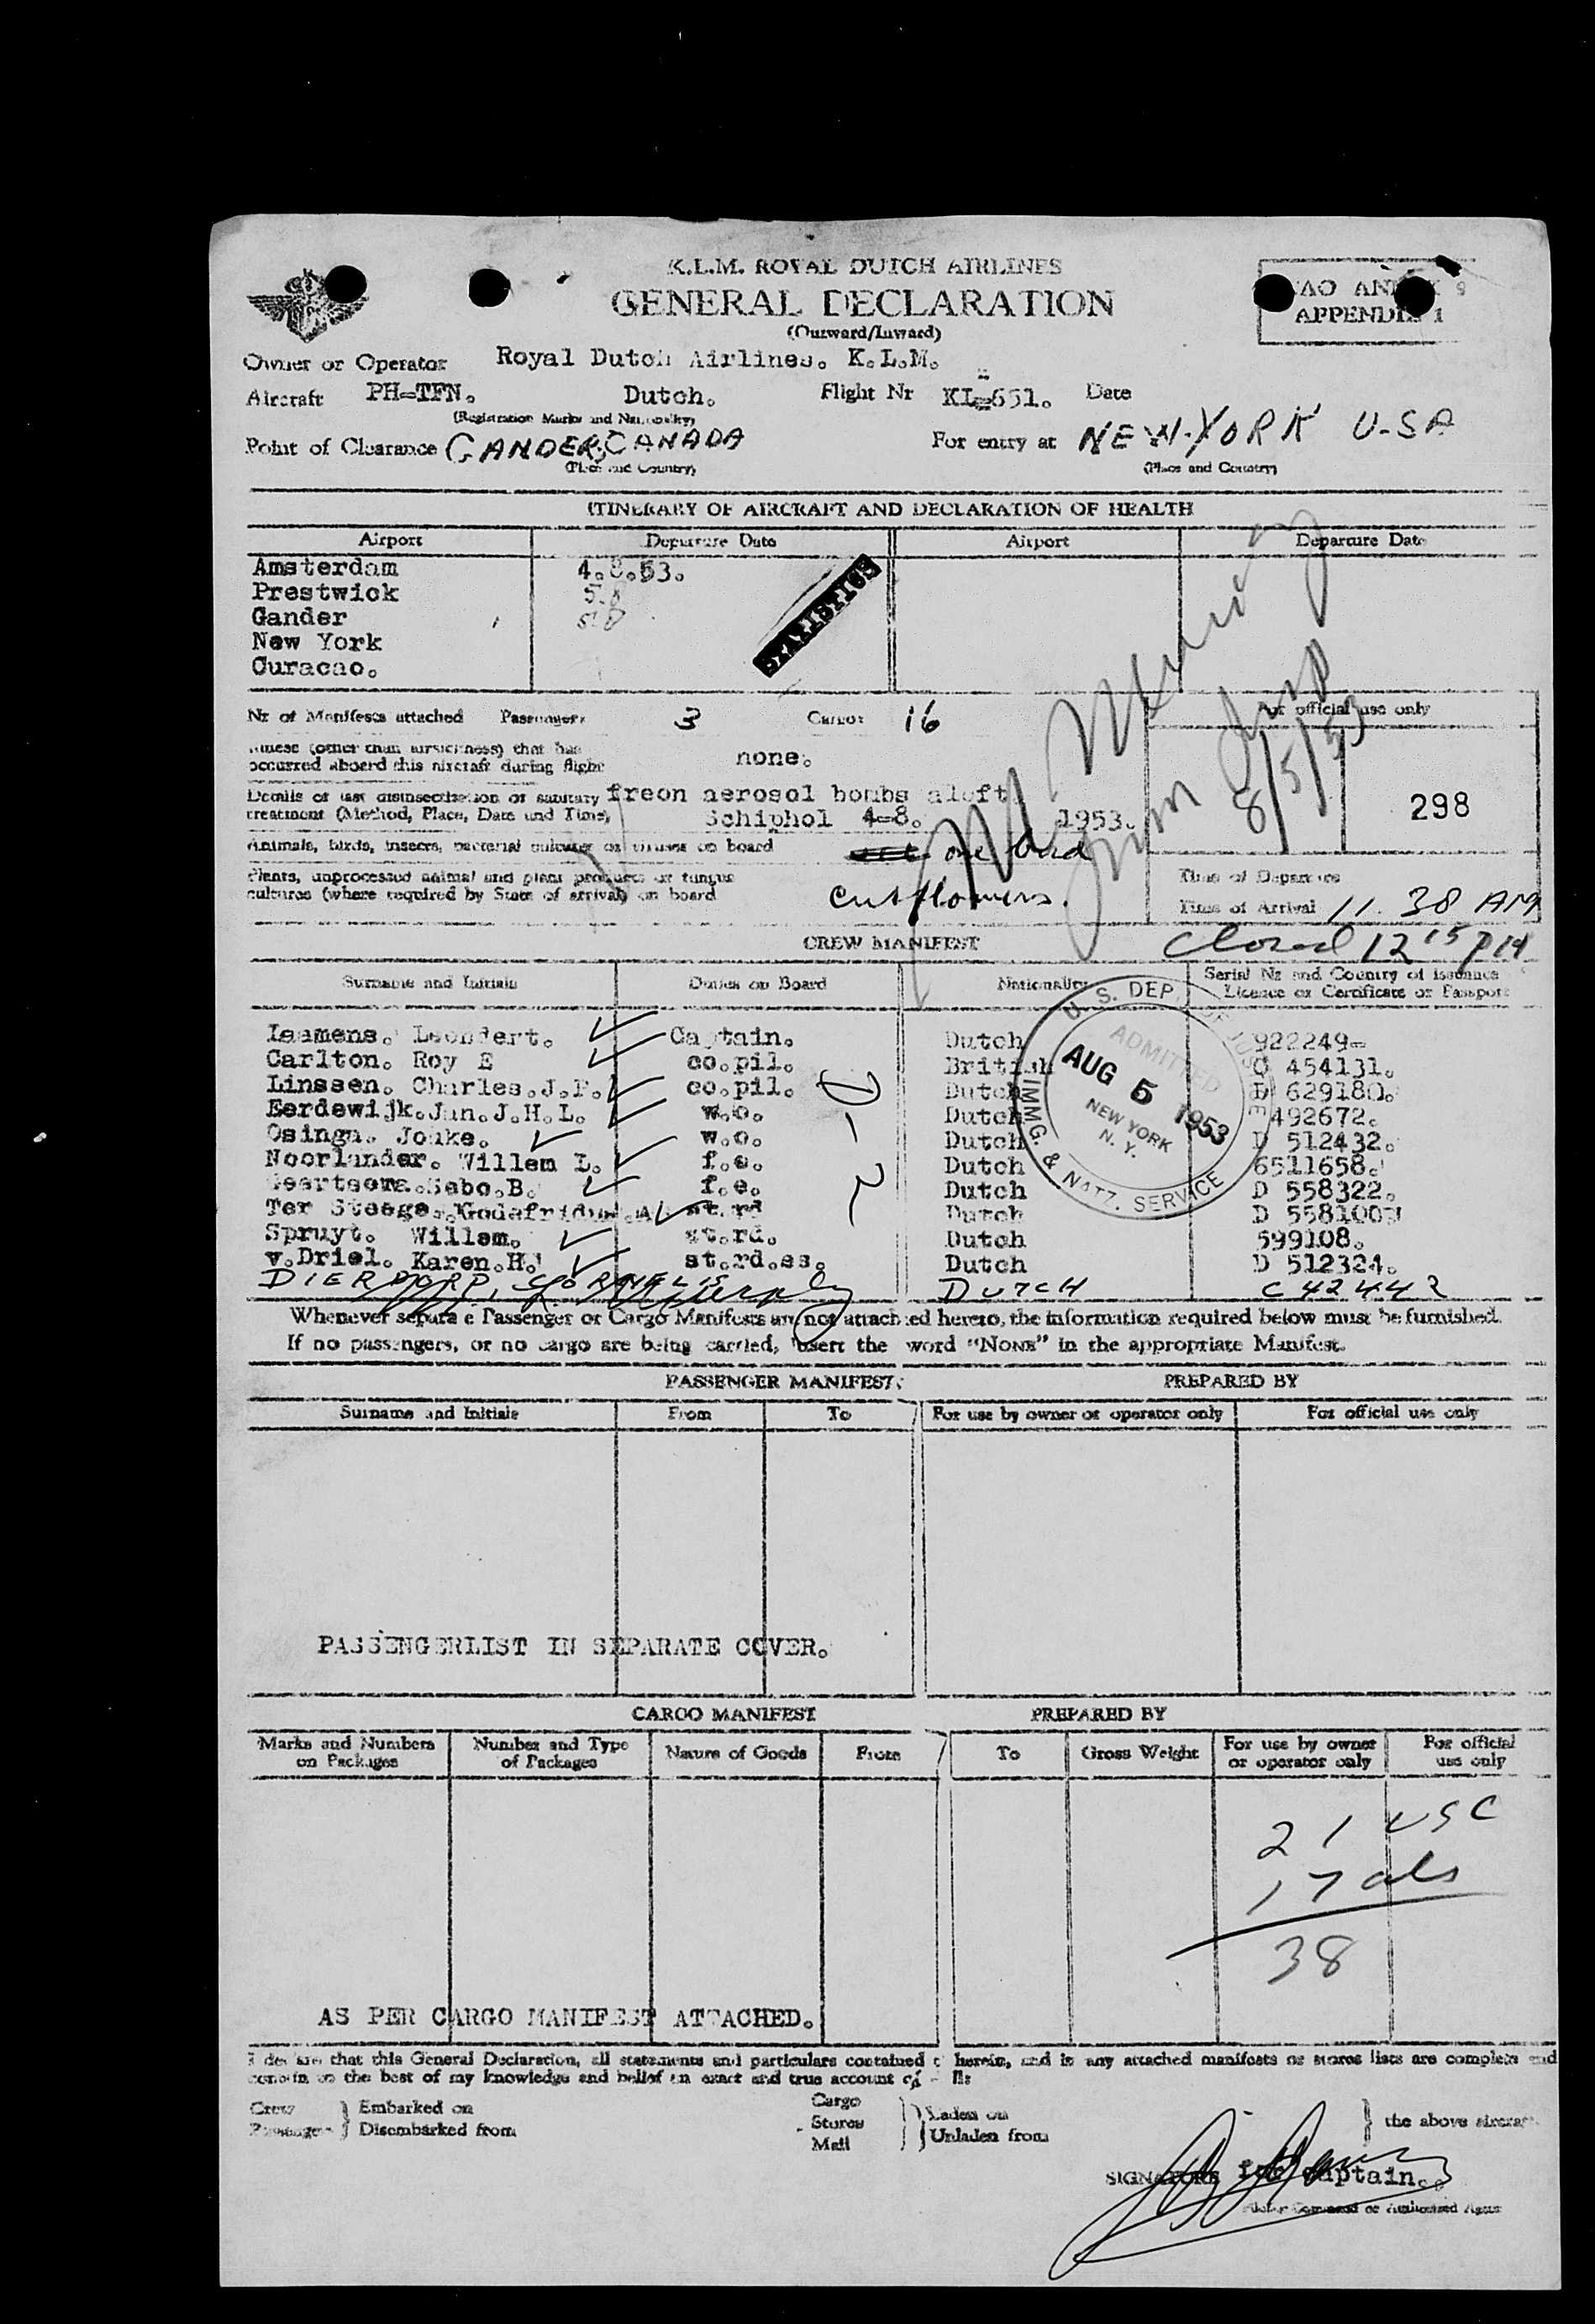 K.L.M. ROYAL DUTCH AIRLINES
GENERAL DECLARATION
(Outward/Inward)
APPENDIX 1
Owner or Operator Royal Dutch Airlines. K.L.M.
Aircraft PH-TFN. Dutch. Flight Nr KL-651. Date
(Registration Marks and Nationality)
Point of Clearance GANDER, CANADA For entry at NEW-YORK U-SA
(Place and Country) (Place and Country)
ITINERARY OF AIRCRAFT AND DECLARATION OF HEALTH
Airport Departure Date Airport Departure Date
Amsterdam 4.8.53.
Prestwick 5.8
Gander 5.8
New York
Curacao.
STATISTICS
Nr of Manifests attached Passengers 3 Cargo: 16
For official use only
Illness (other than airsickness) that has
occurred aboard this aircraft during flight none.
Details of last disinsectisation or sanitary freon aerosol bombs aloft
treatment (Method, Place, Date and Time) Schiphol 4-8. 1953.
8/5/53
298
Animals, birds, insects, bacterial cultures or viruses on board one bird
Plants, unprocessed animal and plant products or fungus
cultures (where required by State of arrival) on board cut flowers.
Time of Departure
Time of Arrival 11.38 AM
Closed 12 15 PM
CREW MANIFEST
Surname and Initials Duties on Board Nationality Serial Nr and Country of issuance
Licence or Certificate or Passport
Laamens. Leendert. Captain. Dutch 922249-
Carlton. Roy E co.pil. British C 454131.
Linssen. Charles.J.P. co.pil. Dutch D 629180.
Eerdewijk.Jan.J.H.L. w.o. Dutch 492672.
Osinga. Jouke. w.o. Dutch D 512432.
Noorlander. Willem L. f.e. Dutch 6511658.
Geertsema.Sebo.B. f.e. Dutch D 558322.
Ter Steege.Godefridus.A st.rd Dutch D 558100
Spruyt. Willem. st.rd. Dutch 599108.
v.Driel. Karen.H. st.rd.es. Dutch D 512324.
DIERDORP, CORNELIS DUTCH C 42442
U. S. DEP. OF JUSTICE
ADMITTED
AUG 5 1953
NEW YORK
N. Y.
IMMG. & NATZ. SERVICE
Whenever separate Passenger or Cargo Manifests are not attached hereto, the information required below must be furnished.
If no passengers, or no cargo are being carried, insert the word "NONE" in the appropriate Manifest.
PASSENGER MANIFEST. PREPARED BY
Surname and Initials From To For use by owner or operator only For official use only
PASSENGERLIST IN SEPARATE COVER.
CARGO MANIFEST PREPARED BY
Marks and Numbers on Packages Number and Type of Packages Nature of Goods From To Gross Weight For use by owner or operator only For official use only
21 USC
17 als
38
AS PER CARGO MANIFEST ATTACHED.
I declare that this General Declaration, all statements and particulars contained herein, and in any attached manifests or stores lists are complete and
contain to the best of my knowledge and belief an exact and true account of all:
Crew Embarked on Cargo Laden on
Passengers Disembarked from Stores Unladen from the above aircraft
Mail
SIGNATURE for Captain.
Pilot in Command or Authorised Agent